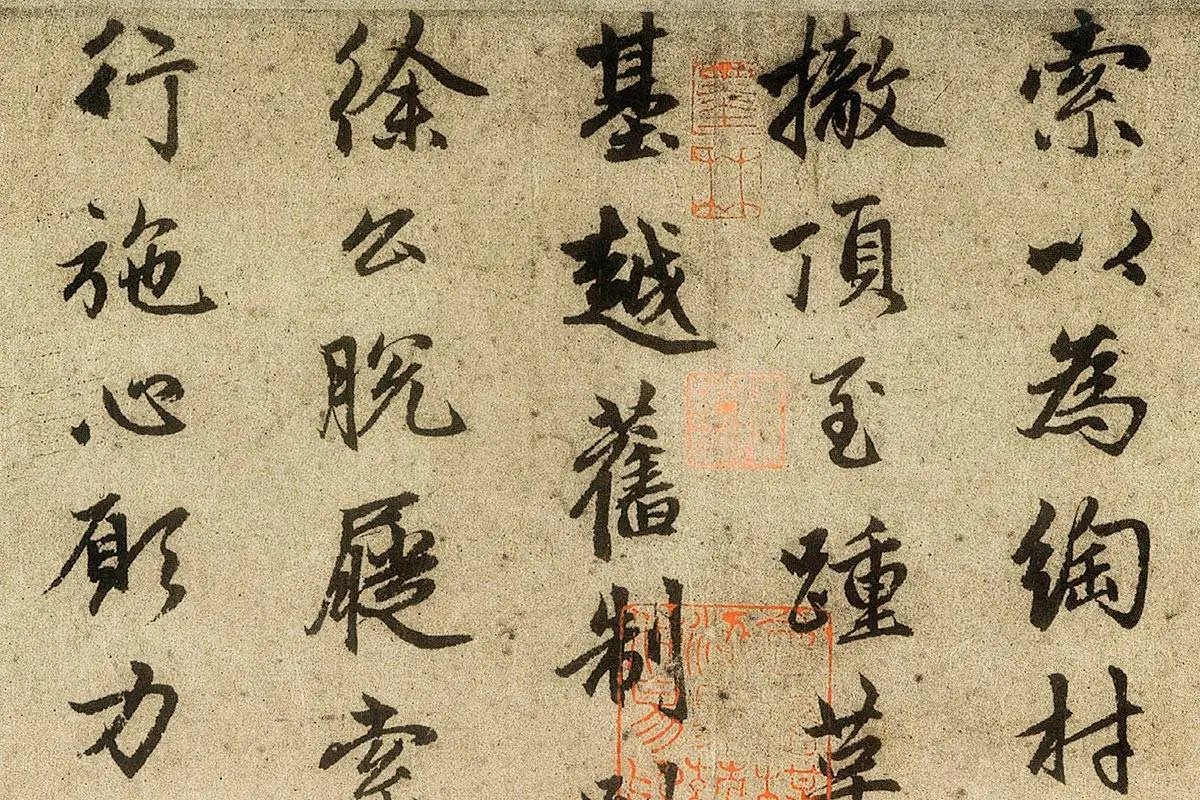 索以為綯村
撤頂至踵
基越舊制
徐公脫屣
行施心願力